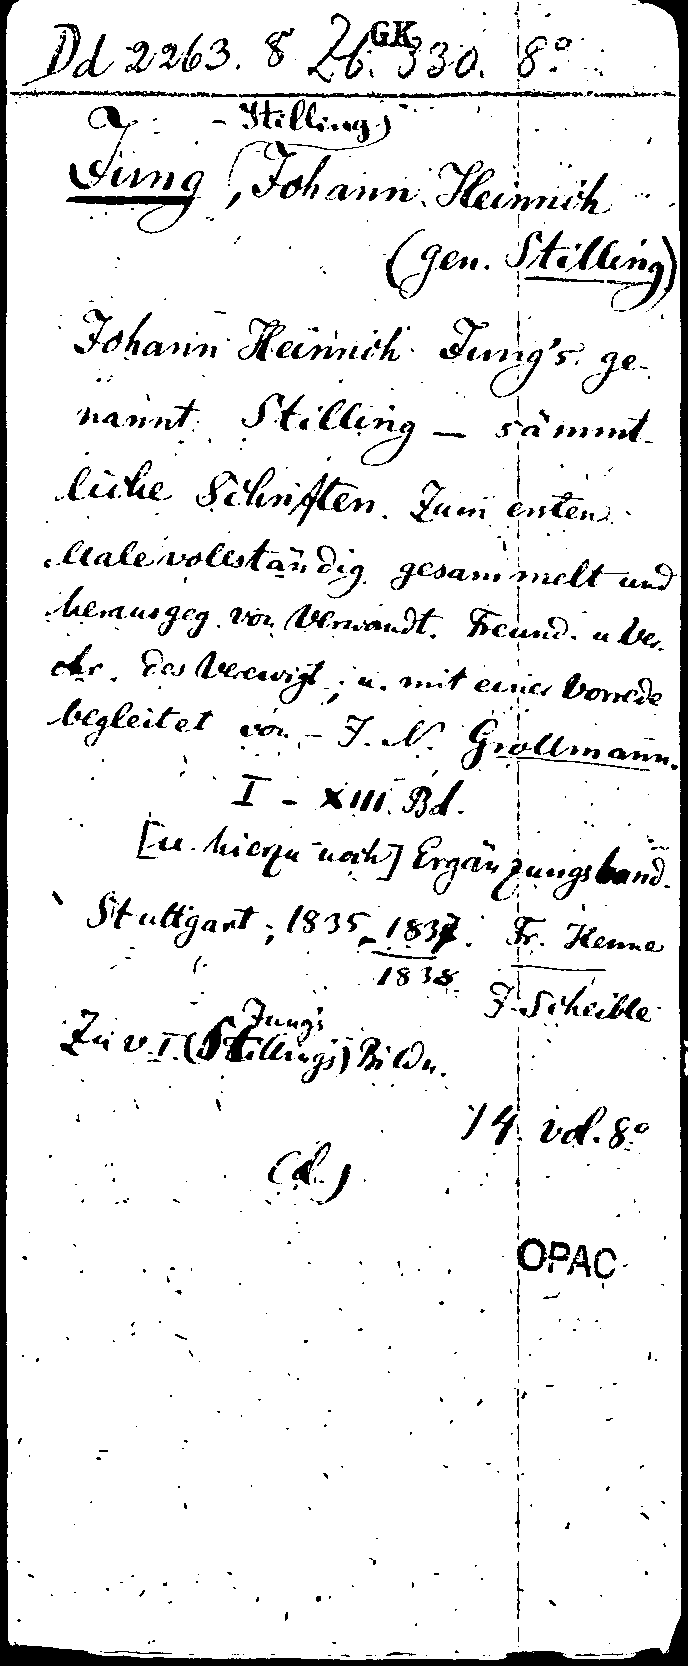 Dd 2263. 8 26. 330. 8°
GK
J. - Stilling)
Jung, Johann Heinrich
(gen. Stilling)
Johann Heinrich Jung's ge-
nannt Stilling — sämmt-
liche Schriften. Zum ersten
Male vollständig gesammelt und
herausgeg. von Verwandt. Freund. u Ver-
ehr. des Verewigt.; u. mit einer Vorrede
begleitet von - J. N. Grollmann.
I - XIII. Bd.
[u. hierzu noch] Ergänzungsband.
Stuttgart; 1835-1837. Fr. Henne
1838 J. Scheible
Jung's
Zu v. I. (Stilling's) Bildn.
14. vol. 8°
(d.)
OPAC